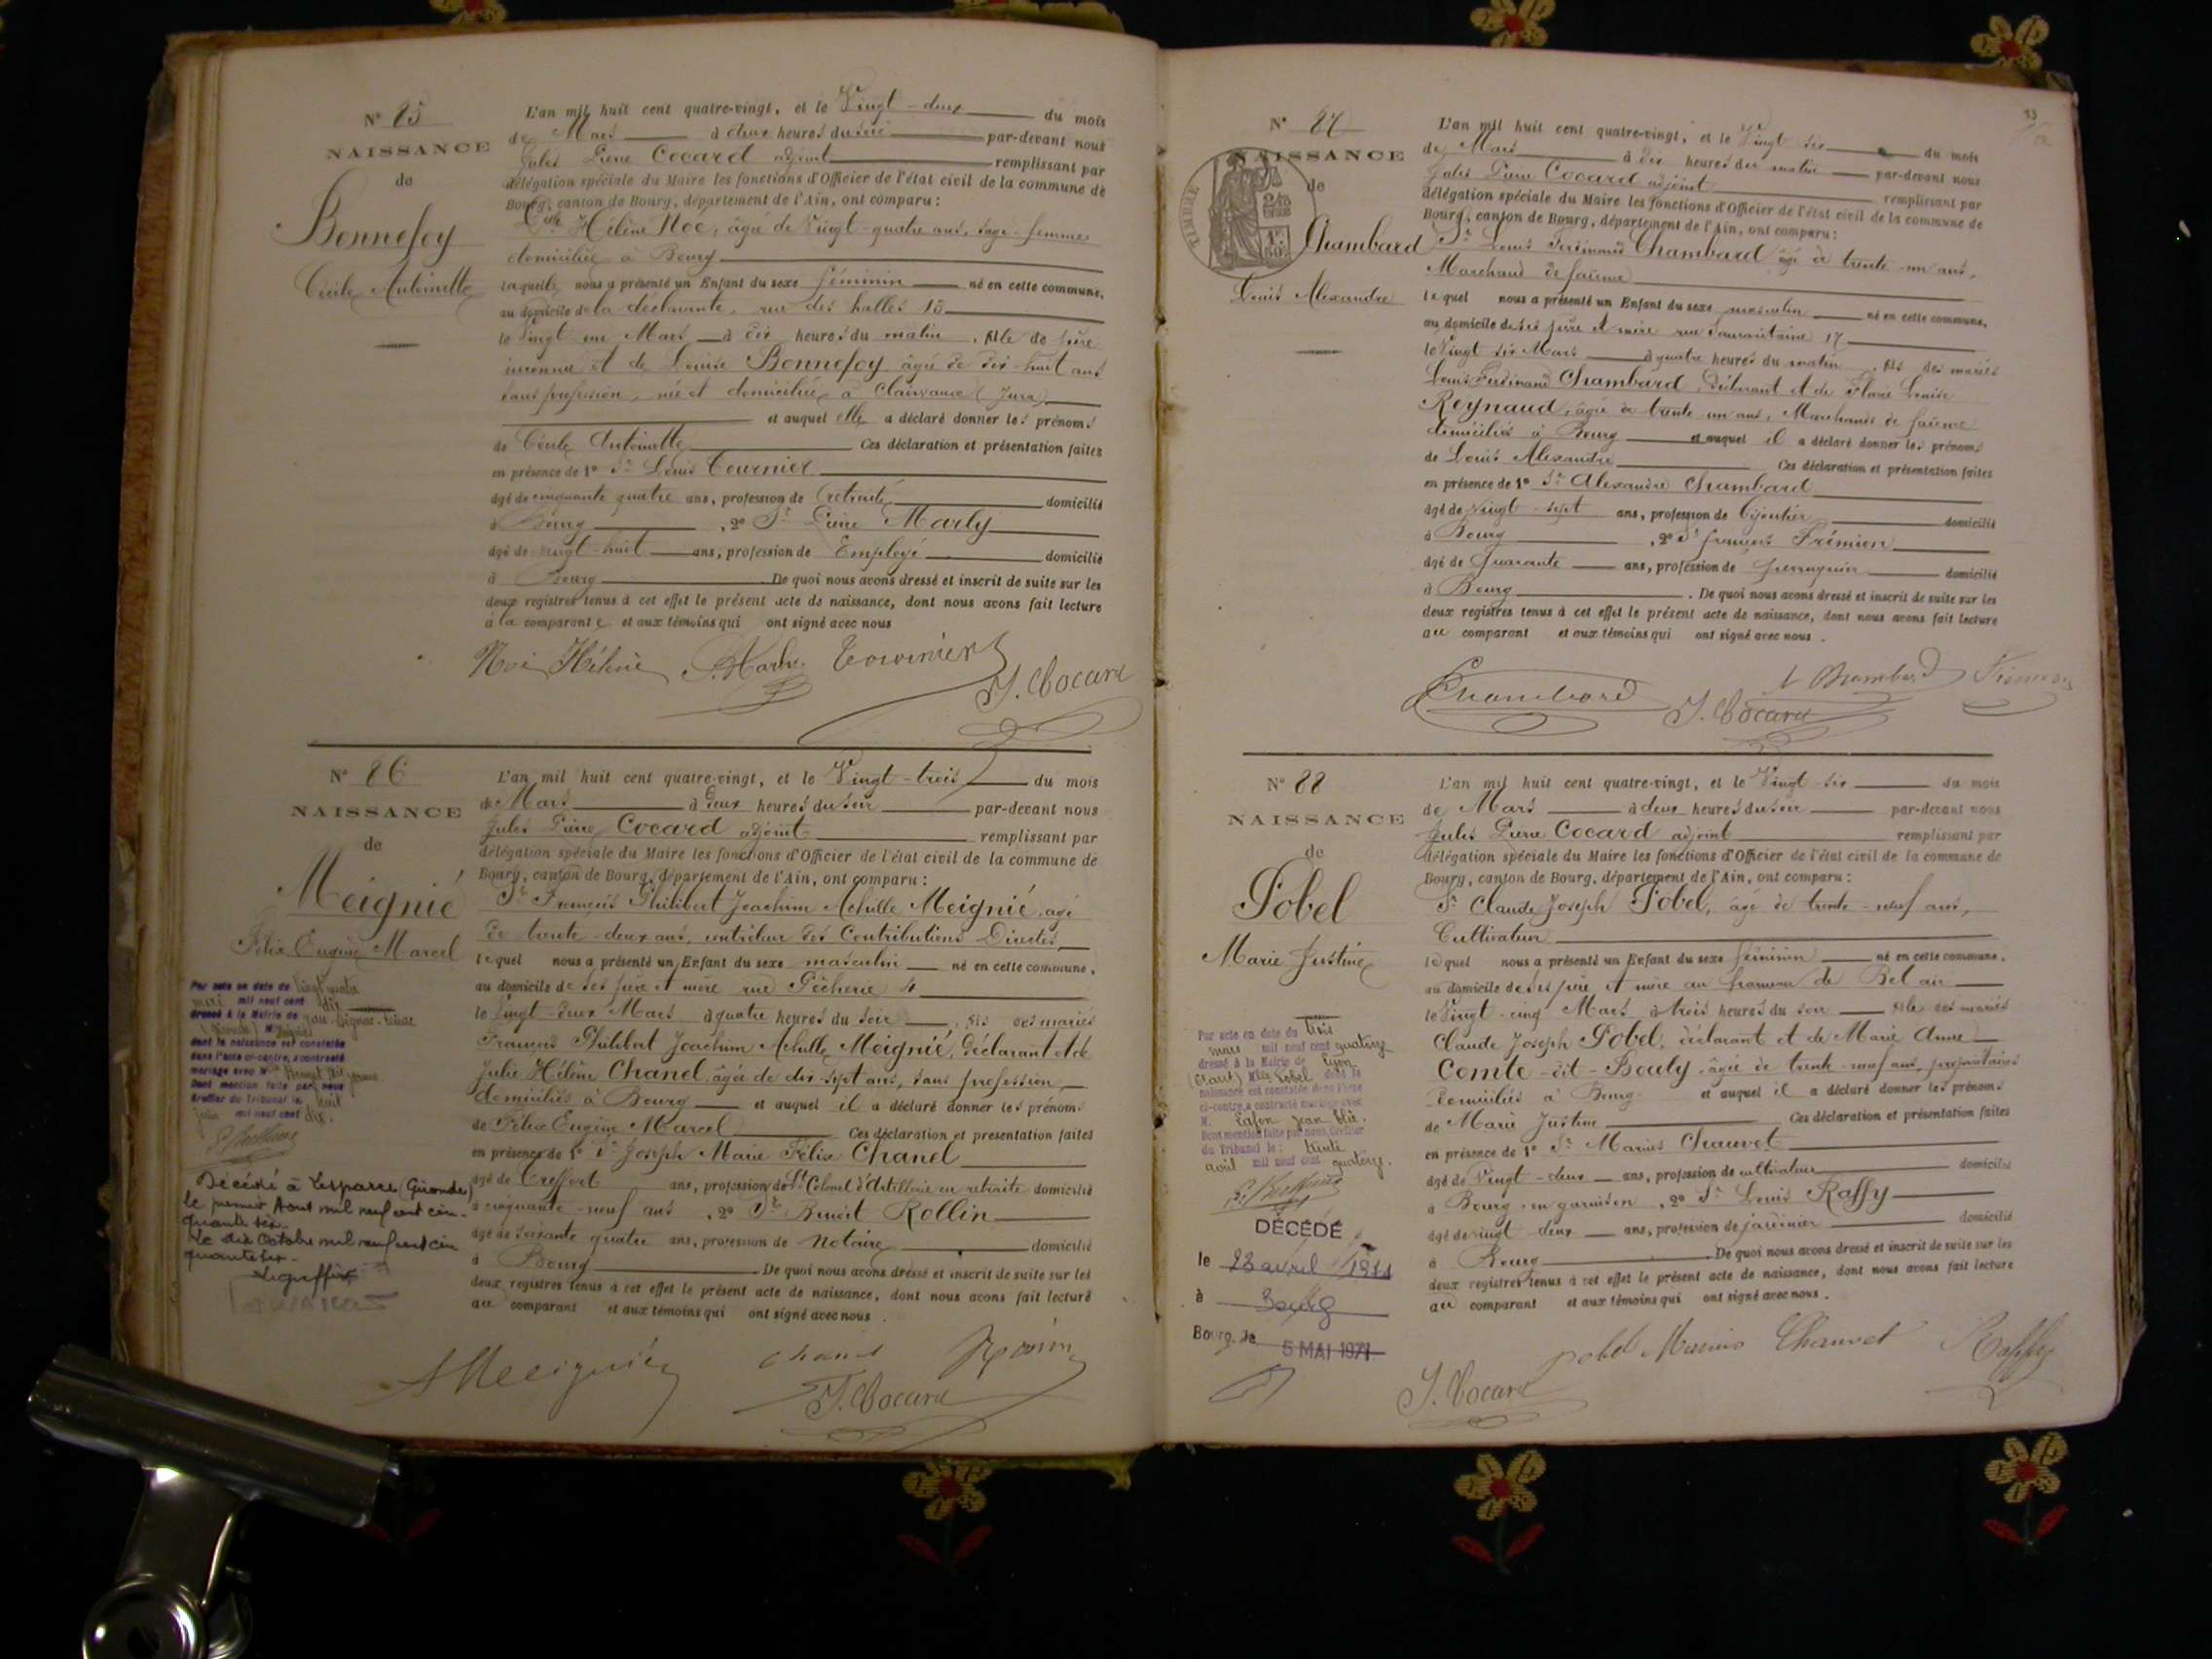 N° 85
NAISSANCE
de
Bonnefoy
Cécile Antoinette
L'an mil huit cent quatre-vingt, et le Vingt-deux du mois
de Mars à deux heures du soir par-devant nous
Jules Pierre Cocard adjoint remplissant par
délégation spéciale du Maire les fonctions d'Officier de l'état civil de la commune de
Bourg, canton de Bourg, département de l'Ain, ont comparu :
Hélène Noé, âgée de Vingt-quatre ans, sage-femme
domiciliée à Bourg
laquelle nous a présenté un Enfant du sexe féminin né en cette commune,
au domicile de la déclarante, rue des halles 15
le Vingt-un Mars à dix heures du matin, fille de père
inconnu et de Louise Bonnefoy âgée de dix-huit ans
sans profession, née et domiciliée à Clairvaux (Jura)
et auquel elle a déclaré donner les prénoms
de Cécile Antoinette Ces déclaration et présentation faites
en présence de 1° Sr Louis Tournier
âgé de cinquante quatre ans, profession de retraité domicilié
à Bourg, 2° Sr Pierre Marly
âgé de vingt-huit ans, profession de Employé domicilié
à Bourg De quoi nous avons dressé et inscrit de suite sur les
deux registres tenus à cet effet le présent acte de naissance, dont nous avons fait lecture
à la comparante et aux témoins qui ont signé avec nous
Noé Hélène Tournier
J. Cocard
N° 86
NAISSANCE
de
Meignié
Félix Eugène Marcel
L'an mil huit cent quatre-vingt, et le Vingt-trois du mois
de Mars à deux heures du soir par-devant nous
Jules Pierre Cocard adjoint remplissant par
délégation spéciale du Maire les fonctions d'Officier de l'état civil de la commune de
Bourg, canton de Bourg, département de l'Ain, ont comparu :
Sr François Philibert Joachim Achille Meignié, âgé
de trente-deux ans, contrôleur des Contributions Directes
lequel nous a présenté un Enfant du sexe masculin né en cette commune,
au domicile de ses père et mère rue Pêcherie 4
le Vingt-deux Mars à quatre heures du soir, fils des mariés
François Philibert Joachim Achille Meignié, déclarant et de
Julie Hélène Chanel âgée de dix-sept ans, sans profession,
domiciliés à Bourg et auquel il a déclaré donner les prénoms
de Félix Eugène Marcel Ces déclaration et présentation faites
en présence de 1° Sr Joseph Marie Félix Chanel
âgé de Treffort ans, profession de Lt Colonel d'Artillerie en retraite domicilié
à cinquante-neuf ans, 2° Sr Benoit Rollin
âgé de soixante quatre ans, profession de Notaire domicilié
à Bourg De quoi nous avons dressé et inscrit de suite sur les
deux registres tenus à cet effet le présent acte de naissance, dont nous avons fait lecture
au comparant et aux témoins qui ont signé avec nous.
Par acte en date du vingt quatre
mai mil neuf cent dix
dressé à la Mairie de
(Gironde) M. Meignié
dont la naissance est constatée
dans l'acte ci-contre, a contracté
mariage avec
Dont mention faite par nous
Greffier du Tribunal le huit
juin mil neuf cent dix.
Décédé à Lesparre (Gironde)
le premier Aout mil neuf cent cin-
quante six.
Le dix Octobre mil neuf cent cin
quante six.
Le greffier
AMeignié Chanel
J. Cocard
13
N° 87
NAISSANCE
de
TIMBRE
Chambard
Louis Alexandre
L'an mil huit cent quatre-vingt, et le Vingt six du mois
de Mars à dix heures du matin par-devant nous
Jules Pierre Cocard adjoint remplissant par
délégation spéciale du Maire les fonctions d'Officier de l'état civil de la commune de
Bourg, canton de Bourg, département de l'Ain, ont comparu :
Sr Louis Ferdinand Chambard âgé de trente-un ans,
Marchand de faïence
lequel nous a présenté un Enfant du sexe masculin né en cette commune,
au domicile de ses père et mère rue Samaritaine 17
le Vingt six Mars à quatre heures du matin, fils des mariés
Louis Ferdinand Chambard, déclarant et de Marie Louise
Reynaud, âgée de trente-un ans, Marchands de faïence
domiciliés à Bourg et auquel il a déclaré donner les prénoms
de Louis Alexandre Ces déclaration et présentation faites
en présence de 1° Sr Alexandre Chambard
âgé de vingt-sept ans, profession de bijoutier domicilié
à Bourg, 2° Sr françois Frémion
âgé de Quarante ans, profession de perruquier domicilié
à Bourg. De quoi nous avons dressé et inscrit de suite sur les
deux registres tenus à cet effet le présent acte de naissance, dont nous avons fait lecture
au comparant et aux témoins qui ont signé avec nous.
Chambard A Chambard
J. Cocard
N° 88
NAISSANCE
de
Pobel
Marie Justine
L'an mil huit cent quatre-vingt, et le Vingt-six du mois
de Mars à deux heures du soir par-devant nous
Jules Pierre Cocard adjoint remplissant par
délégation spéciale du Maire les fonctions d'Officier de l'état civil de la commune de
Bourg, canton de Bourg, département de l'Ain, ont comparu :
Sr Claude Joseph Pobel, âgé de trente-neuf ans,
Cultivateur
lequel nous a présenté un Enfant du sexe féminin né en cette commune,
au domicile de ses père et mère au hameau de Bel air
le Vingt-cinq Mars à trois heures du soir fille des mariés
Claude Joseph Pobel, déclarant et de Marie Anne
Comte-dit-Bouly âgée de trente-neuf ans, propriétaires
domiciliés à Bourg et auquel il a déclaré donner les prénoms
de Marie Justine Ces déclaration et présentation faites
en présence de 1° Sr Marius Chauvet
âgé de Vingt-deux ans, profession de cultivateur domicilié
à Bourg en garnison, 2° Sr Louis Raffy
âgé de vingt-deux ans, profession de jardinier domicilié
à Bourg. De quoi nous avons dressé et inscrit de suite sur les
deux registres tenus à cet effet le présent acte de naissance, dont nous avons fait lecture
au comparant et aux témoins qui ont signé avec nous.
Par acte en date du trois
mars mil neuf cent quatorze
dressé à la Mairie de Lyon
Mlle Pobel dont la
naissance est constatée dans l'acte
ci-contre, a contracté mariage avec
M. Lafon Jean
Dont mention faite par nous, Greffier
du Tribunal le : trente
avril mil neuf cent quatorze.
DÉCÉDÉ
le 23 avril 1971
à Bourg
Bourg, le 5 MAI 1971
pobel Marius Chauvet Raffy
J. Cocard